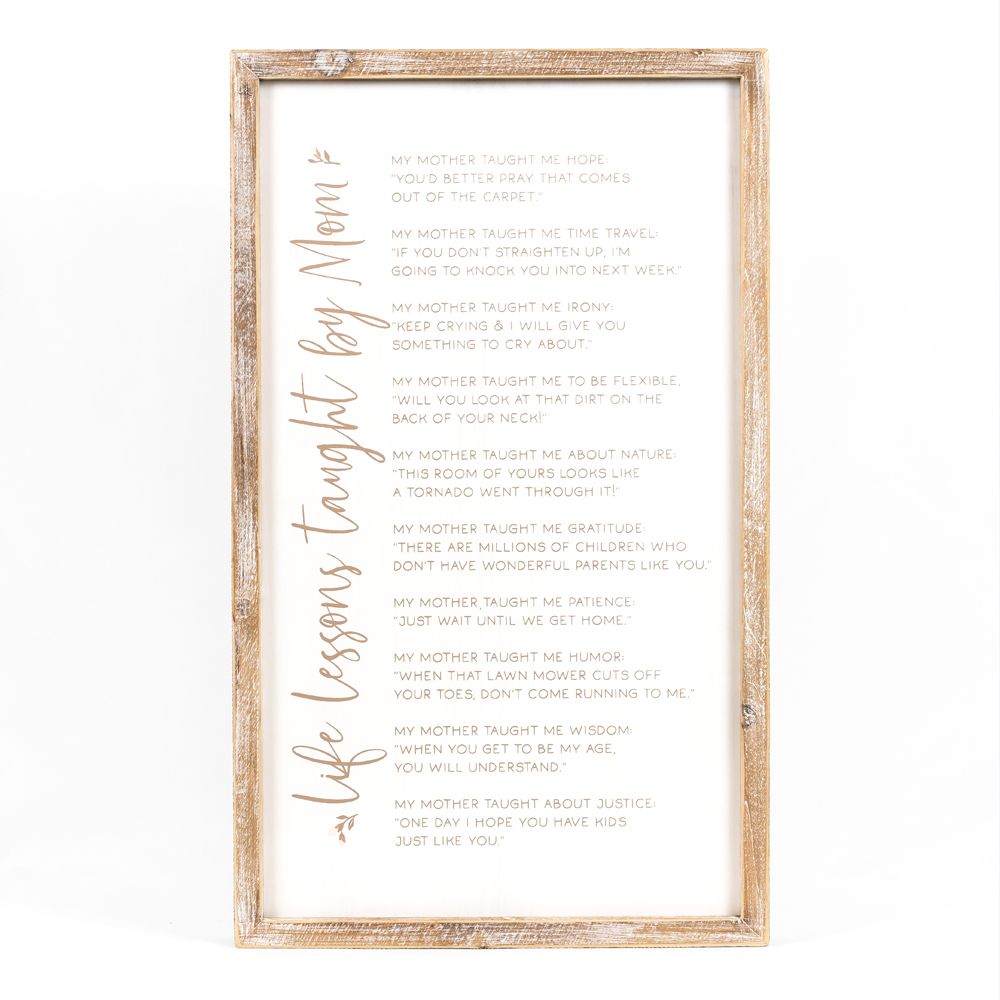 Life Lessons taught by Mom
MY MOTHER TAUGHT ME HOPE:
"YOU'D BETTER PRAY THAT COMES
OUT OF THE CARPET."
MY MOTHER TAUGHT ME TIME TRAVEL:
"IF YOU DON'T STRAIGHTEN UP, I'M
GOING TO KNOCK YOU INTO NEXT WEEK."
MY MOTHER TAUGHT ME IRONY:
"KEEP CRYING & I WILL GIVE YOU
SOMETHING TO CRY ABOUT."
MY MOTHER TAUGHT ME TO BE FLEXIBLE,
"WILL YOU LOOK AT THAT DIRT ON THE
BACK OF YOUR NECK!"
MY MOTHER TAUGHT ME ABOUT NATURE:
"THIS ROOM OF YOURS LOOKS LIKE
A TORNADO WENT THROUGH IT!"
MY MOTHER TAUGHT ME GRATITUDE:
"THERE ARE MILLIONS OF CHILDREN WHO
DON'T HAVE WONDERFUL PARENTS LIKE YOU."
MY MOTHER, TAUGHT ME PATIENCE:
"JUST WAIT UNTIL WE GET HOME."
MY MOTHER TAUGHT ME HUMOR:
"WHEN THAT LAWN MOWER CUTS OFF
YOUR TOES, DON'T COME RUNNING TO ME."
MY MOTHER TAUGHT ME WISDOM:
"WHEN YOU GET TO BE MY AGE,
YOU WILL UNDERSTAND."
MY MOTHER TAUGHT ABOUT JUSTICE:
"ONE DAY I HOPE YOU HAVE KIDS
JUST LIKE YOU."